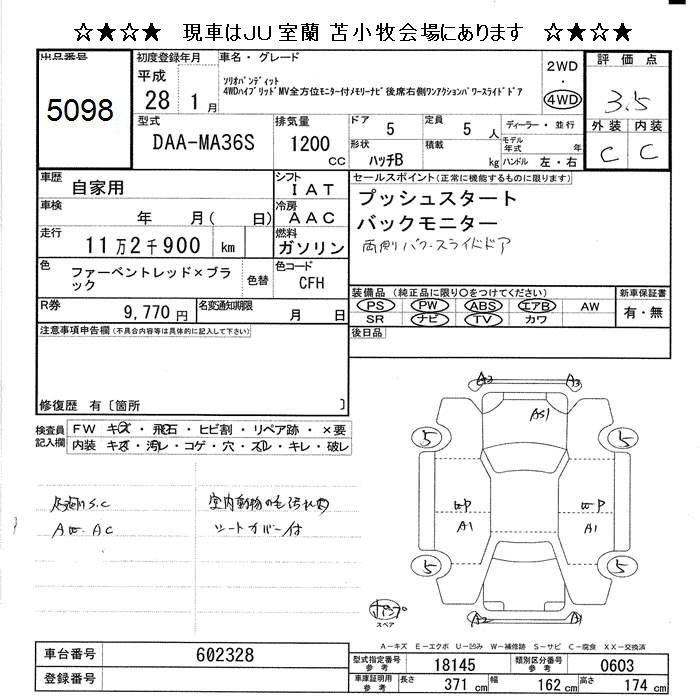 ☆★☆★ 現車はJU室蘭 苫小牧会場にあります ☆★☆★
出品番号
5098
初度登録年月
平成
28 1月
車名・グレード
ソリオバンディット
4WDハイブリッドMV全方位モニター付メモリーナビ後席右側ワンアクションパワースライドドア
2WD
・
4WD
評価点
3.5
外装 内装
C C
型式
DAA-MA36S
排気量
1200
CC
ドア 5
定員 5人
ディーラー・並行
形状 ハッチB
積載 kg
モデル年式 年
ハンドル 左・右
車歴 自家用
シフト IAT
車検 年 月( 日)
冷房 AAC
走行 11万2千900 km
燃料 ガソリン
色 ファーベントレッド×ブラック
色替
色コード CFH
R券 9,770円
名変通知期限 月 日
セールスポイント(正常に機能するものに限ります)
プッシュスタート
バックモニター
両側パワースライドドア
装備品(純正品に限り○をつけてください)
PS PW ABS エアB AW
SR ナビ TV カワ
新車保証書
有・無
後日品
注意事項申告欄(不具合内容等は具体的に記入して下さい)
修復歴 有〔箇所 〕
検査員記入欄
FW キズ・飛石・ヒビ割・リペア跡・×要
内装 キズ・汚れ・コゲ・穴・スレ・キレ・破レ
S.C
AC
室内動物の毛汚れ
シートカバー付
A2 A3
AS1
5 5
P P
A1 A1
5 5
A2 A3
スペア
A-キズ E-エクボ U-凹み W-補修跡 S-サビ C-腐食 XX-交換済
車台番号 602328
登録番号
型式指定番号参考 18145
類別区分番号参考 0603
車庫証明用参考
長さ 371cm
幅 162cm
高さ 174cm